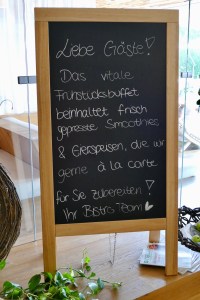 Liebe Gäste!
Das vitale
Frühstücksbuffet
beinhaltet frisch
gepresste Smoothies
& Eierspeisen, die wir
gerne à la carte
für Sie zubereiten!
Ihr Bistro Team